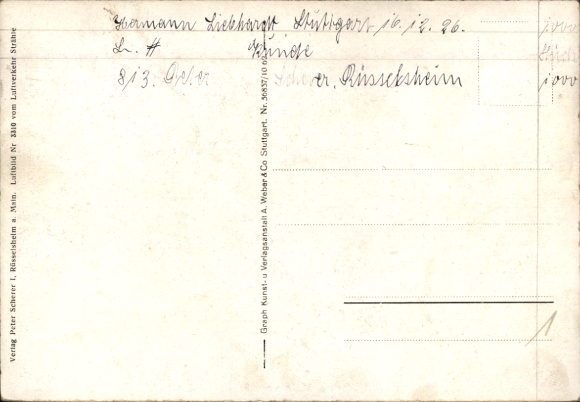 Hermann Liebhardt Stuttgart 16.12.26. 1000
Lr. H Kunde
813. Peter Scherer, Rüsselsheim 1000
Verlag Peter Scherer I, Rüsselsheim a. Main. Luftbild Nr. 3310 vom Luftverkehr Strähle
Graph Kunst- u Verlagsanstalt A. Weber & Co Stuttgart. Nr. 36837/10 62
1